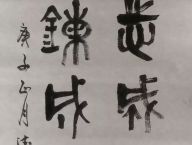 志成
鍊成
庚子正月